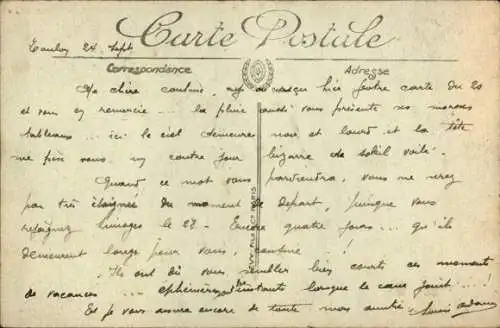 Toulon 24 Sept
Carte Postale
Correspondance
Adresse
Ma chère cousine, reçu hier votre carte du 20
et vous en remercie ... la pluie aussi vous présente ses moroses
tableaux ... ici le ciel demeure noir et lourd et la tête
me fait un contre jour bizarre de soleil voilé.
Quand ce mot vous parviendra, vous ne serez
pas très éloignée du moment de départ, puisque vous
rejoignez Limoges le 28. Encore quatre jours ... qu'ils
demeurent longs pour vous, cousine !
Ils ont dû vous sembler bien courts ces moments
de vacances ... éphémères instants lorsque le cœur joint ... !
Et je vous assure encore de toute mon amitié.